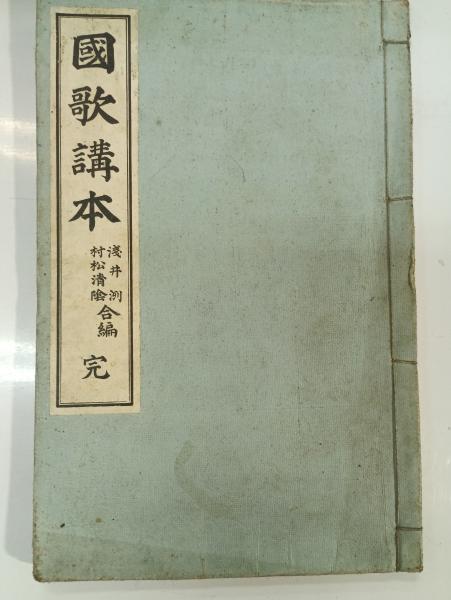 國歌講本
淺井洌
村松清陰
合編
完